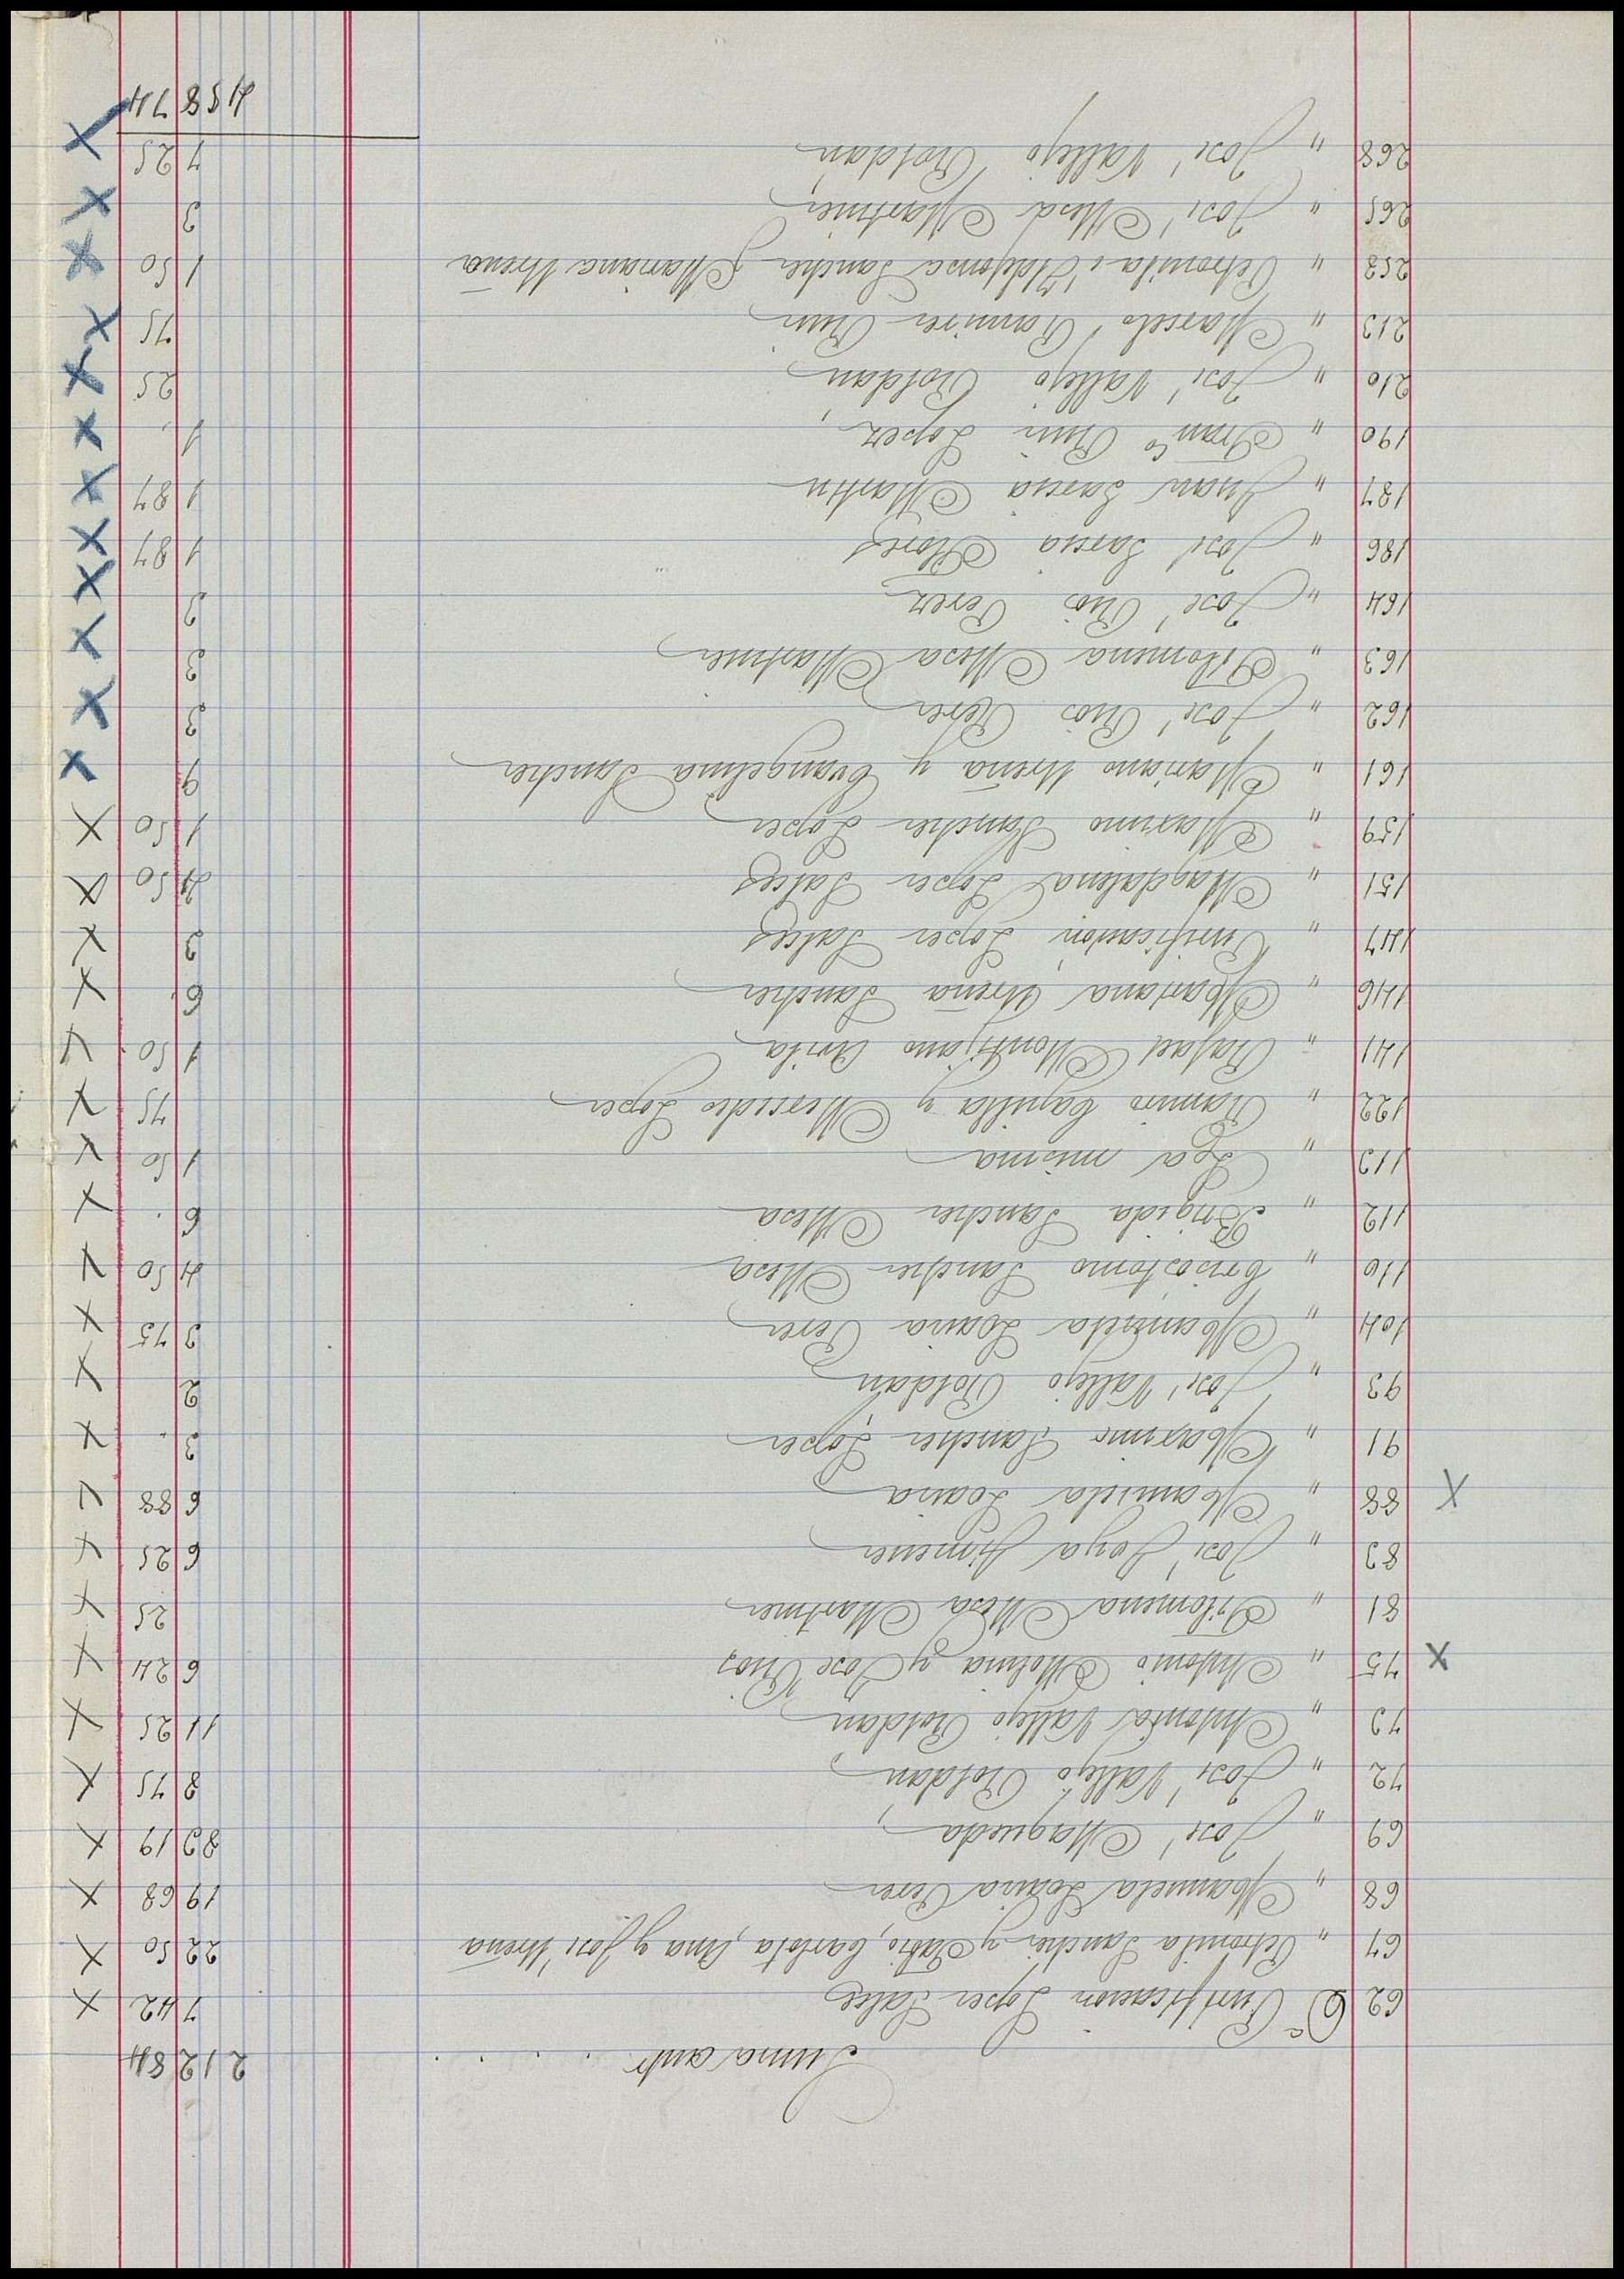 Suma antr . . . . 212 84
62 Dª Purificacion Lopez Salces 7 42 X
67 " Petronila Sanchez y Fabio, Carlota, Ana y José Ureña 22 50 X
68 " Manuela Loaisa Perez 19 68 X
69 " José Maqueda 83 19 X
72 " José Vallejo Roldan 8 75 X
73 " Antonia Vallejo Roldan 11 25 X
X 75 " Antonio Molina y José Rios 6 24 X
81 " Filomena Mesa Martinez 25 X
83 " José Joya Jimenez 6 25 X
X 88 " Manuela Loaisa 6 88 X
91 " Maximo Sanchez Lopez 3 X
93 " José Vallejo Roldan 2 X
104 " Manuela Loaisa Perez 3 75 X
110 " Crisostomo Sanchez Mesa 4 50 X
112 " Brigida Sanchez Mesa 6 X
113 " La misma 1 50 X
122 " Ramiro Capilla y Mercedes Lopez 75 X
141 " Rafael Montijano Avila 1 50 X
146 " Mariana Ureña Sanchez 6 X
147 " Purificacion Lopez Salces 3 X
151 " Magdalena Lopez Salces 4 50 X
159 " Maximo Sanchez Lopez 1 50 X
161 " Mariano Ureña y Evangelina Sanchez 9 X
162 " José Rios Perez 3 X
163 " Filomena Mesa Martinez 3 X
164 " José Rios Perez 3 X
186 " José Garcia Flores 1 87 X
187 " Juan Garcia Martin 1 87 X
190 " Franco Ruiz Lopez 1 X
210 " José Vallejo Roldan 25 X
213 " Marcelo Ramirez Ruiz 75 X
258 " Petronila é Ildefonsa Sanchez y Mariana Ureña 1 50 X
265 " José Mesa Martinez 3 X
268 " José Vallejo Roldan 7 25 X
458 74